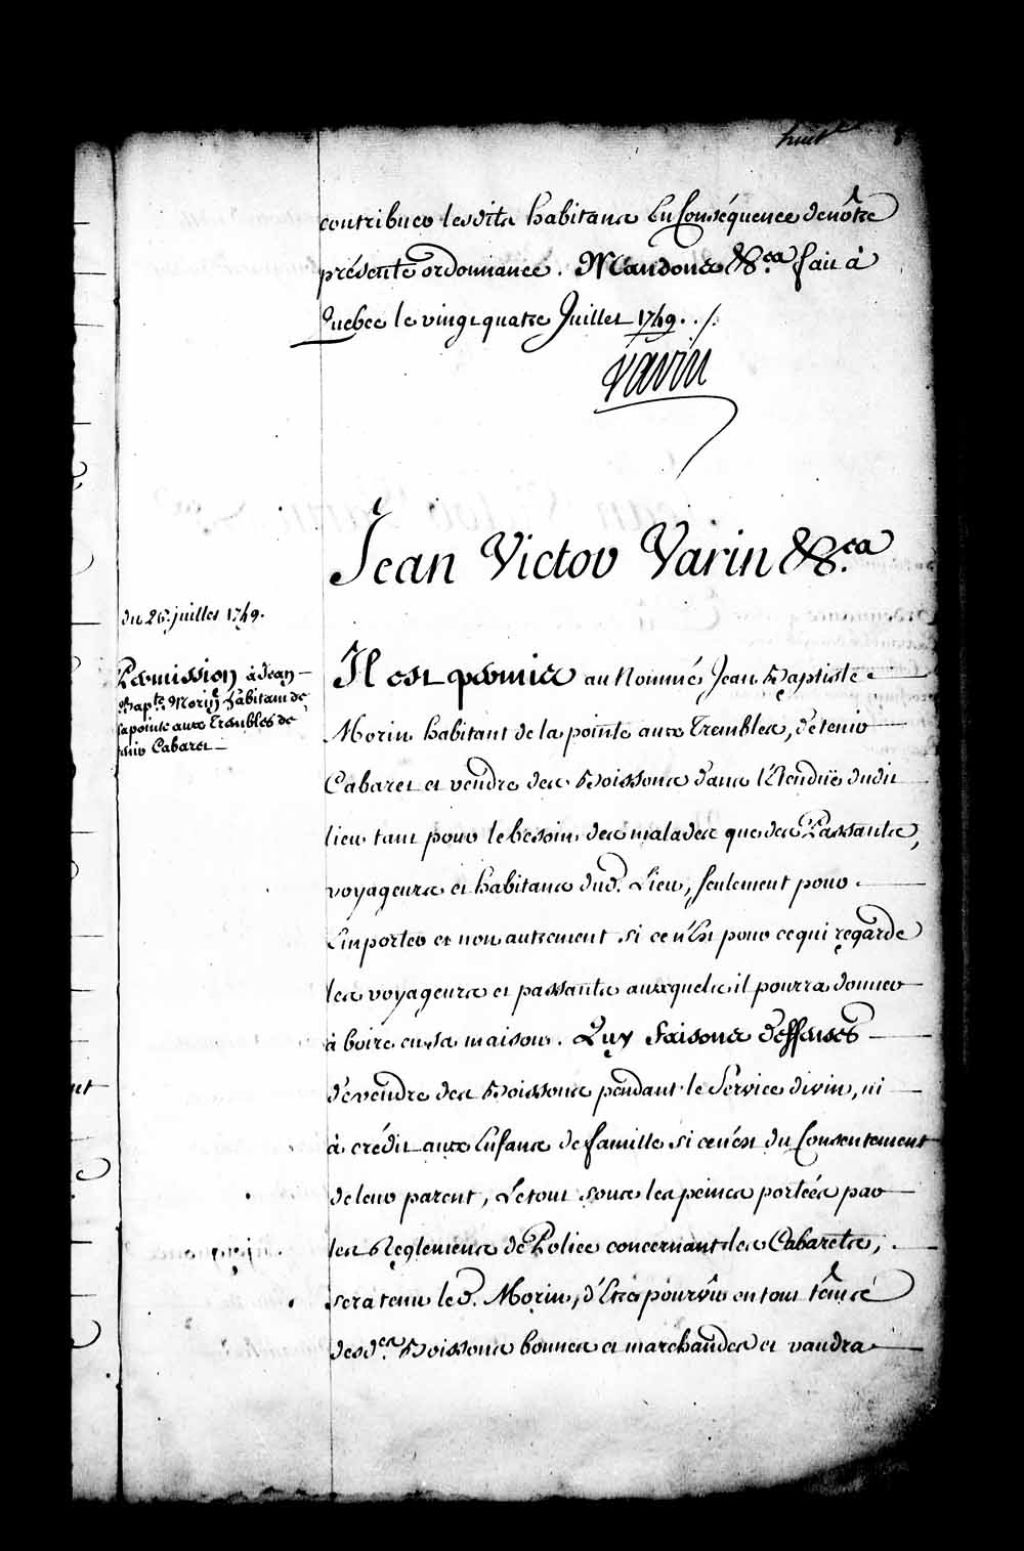 huit
contribuer lesdits habitans En Conséquence denôtre
présente ordonnance. Mandons &c.ca fait à
Quebec le vingt quatre Juillet 1749../.
Varin
Jean Victor Varin &c.ca
du 26. juillet 1749.
Permission à Jean
Bapte. Morin habitant de
la pointe aux Trembles de
tenir Cabaret
Il est permis au Nommé Jean Baptiste
Morin habitant de la pointe aux Trembles, de tenir
Cabaret et vendre des Boissons dans l'Etenduë dudit
lieu tant pour le besoin des malades que des Passants,
voyageurs et habitans dud. Lieu, seulement pour
Emporter et non autrement si ce n'Est pour ce qui regarde
les voyageurs et passants auxquels il pourra donner
à boire en sa maison. Luy faisons deffenses
de vendre des Boissons pendant le Service divin, ni
à crédit aux Enfans de famille si cen'est du Consentement
de leur parent, Le tout sous les peines portées par
les Reglemens de Police concernant les Cabarets,
sera tenu led. Morin, d'Etre pourvû en tout tems
desdes. Boissons bonnes et marchandes et vendra